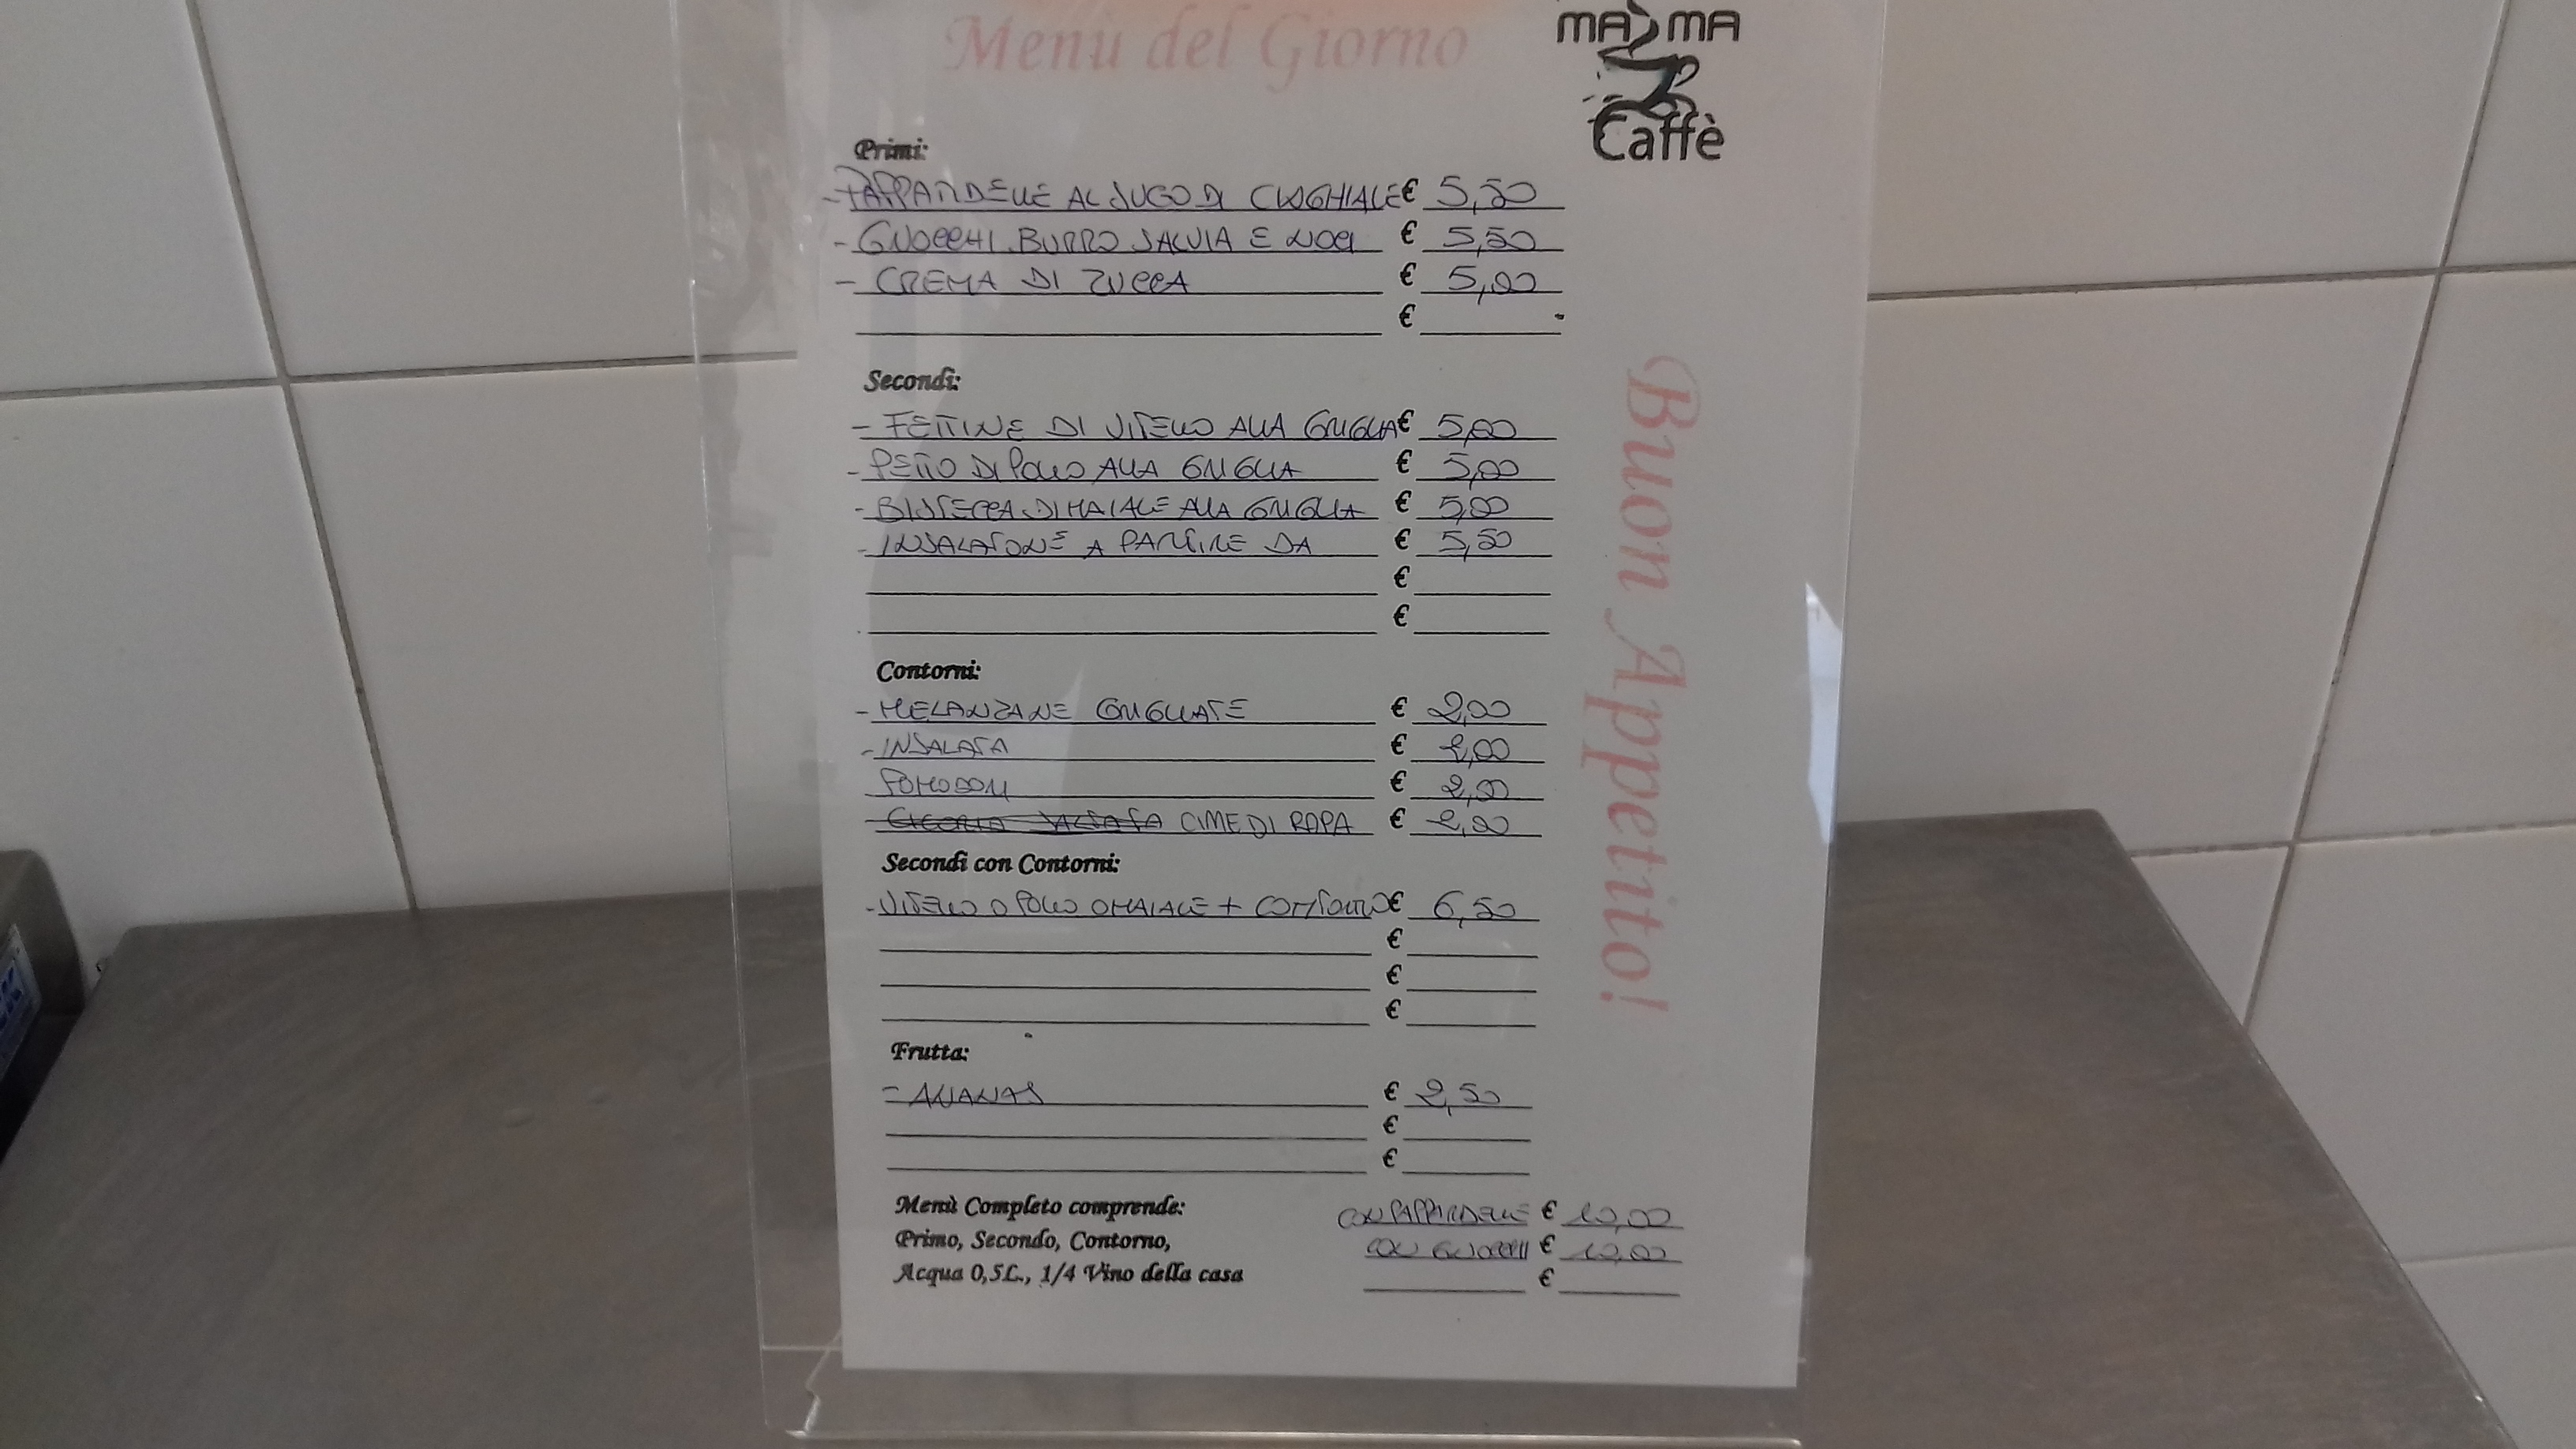 Menù del Giorno
MA MA
Caffè
Primi:
- PAPPARDELLE AL SUGO DI CINGHIALE € 5,50
- GNOCCHI BURRO SALVIA E NOCI € 5,50
- CREMA DI ZUCCA € 5,00
€
Secondi:
- FETTINE DI VITELLO ALLA GRIGLIA € 5,00
- PETTO DI POLLO ALLA GRIGLIA € 5,00
- BISTECCA DI MAIALE ALLA GRIGLIA € 5,00
- INSALATONE A PARTIRE DA € 5,50
€
€
Contorni:
- MELANZANE GRIGLIATE € 2,00
- INSALATA € 2,00
POMODORI € 2,00
- CICORIA SALTATA CIME DI RAPA € 2,00
Secondi con Contorni:
- VITELLO O POLLO O MAIALE + CONTORNO € 6,50
€
€
€
Frutta:
- ANANAS € 2,50
€
€
Menù Completo comprende: CON PAPPARDELLE € 10,00
Primo, Secondo, Contorno, CON GNOCCHI € 10,00
Acqua 0,5L., 1/4 Vino della casa €
Buon Appetito!